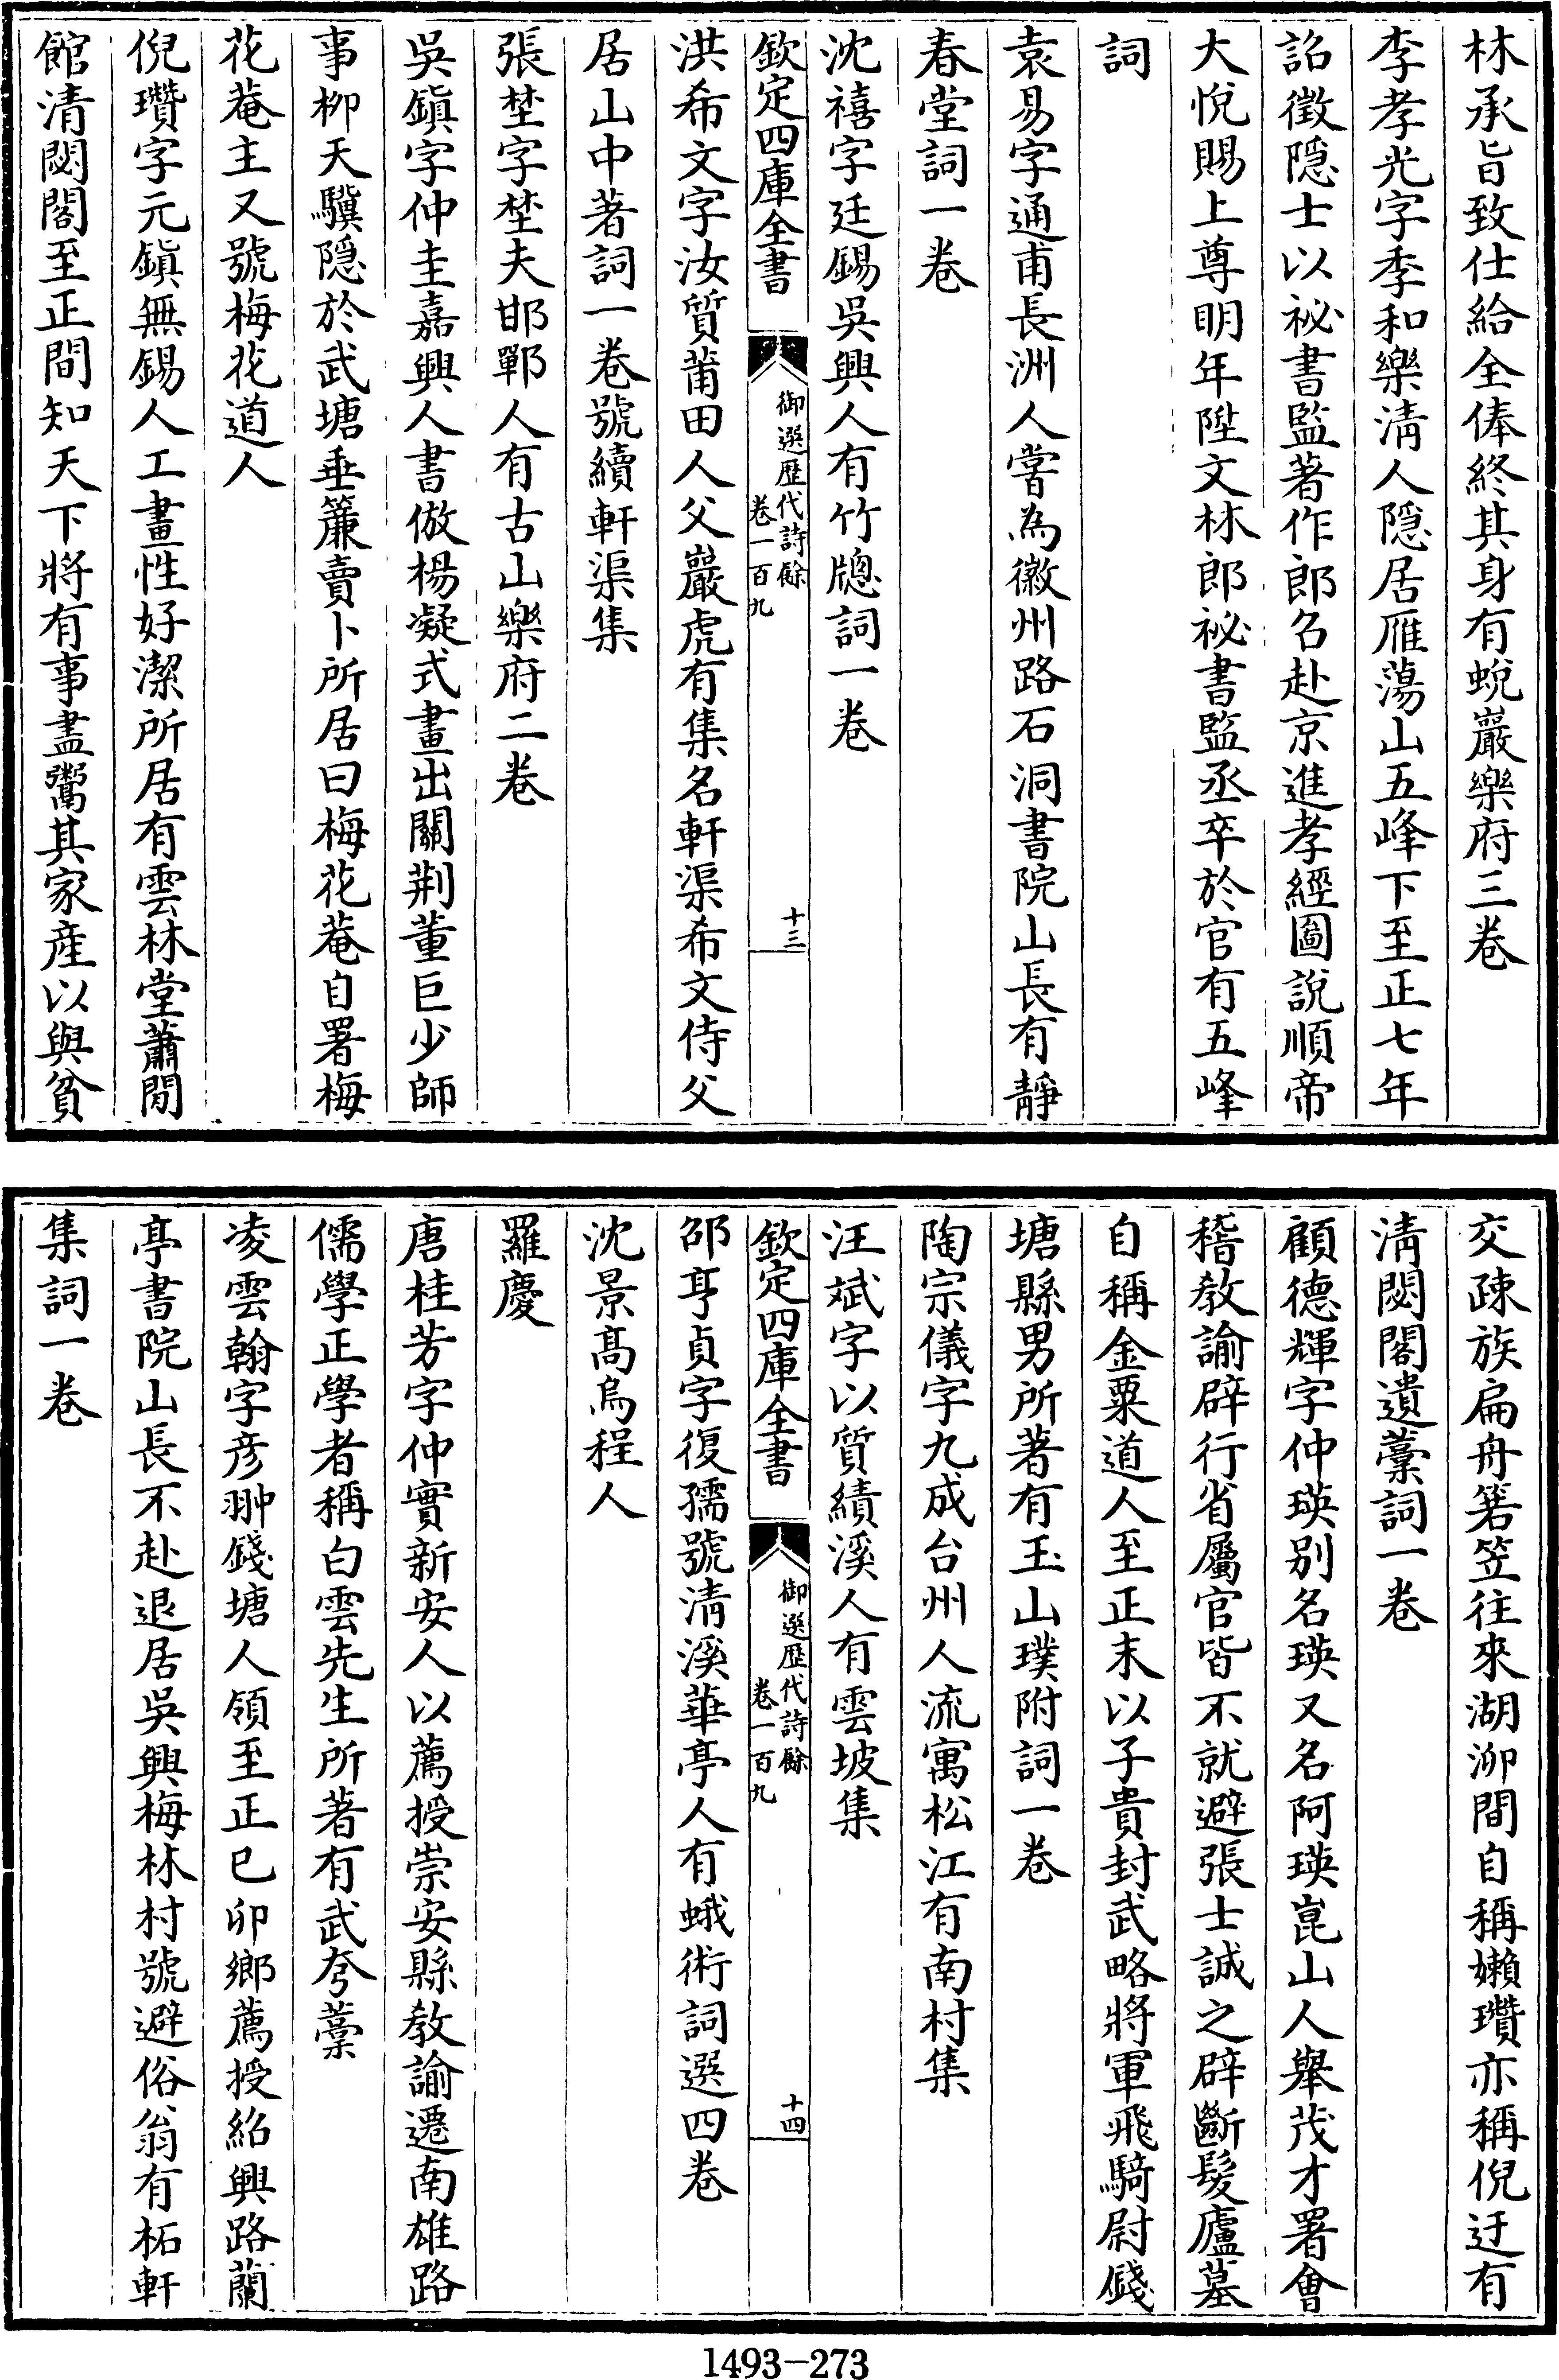 林承旨致仕給全俸終其身有蛻巖樂府三卷
李孝光字季和樂清人隱居雁蕩山五峰下至正七年
詔徵隱士以祕書監著作郎名赴京進孝經圖說順帝
大悅賜上尊明年陞文林郎祕書監丞卒於官有五峰
詞
袁易字通甫長洲人嘗為徽州路石洞書院山長有靜
春堂詞一卷
沈禧字廷錫吳興人有竹牕詞一卷
欽定四庫全書
御選歷代詩餘
卷一百九
十三
洪希文字汝質莆田人父巖虎有集名軒渠希文侍父
居山中著詞一卷號續軒渠集
張埜字埜夫邯鄲人有古山樂府二卷
吳鎮字仲圭嘉興人書倣楊凝式畫出關荆董巨少師
事柳天驥隱於武塘垂簾賣卜所居曰梅花菴自署梅
花菴主又號梅花道人
倪瓚字元鎮無錫人工畫性好潔所居有雲林堂蕭閒
館清閟閣至正間知天下將有事盡鬻其家産以與貧
交疎族扁舟箬笠往來湖泖間自稱嬾瓚亦稱倪迂有
清閟閣遺藁詞一卷
顧德輝字仲瑛别名瑛又名阿瑛崑山人舉茂才署會
稽教諭辟行省屬官皆不就避張士誠之辟斷髮廬墓
自稱金粟道人至正末以子貴封武略將軍飛騎尉錢
塘縣男所著有玉山璞附詞一卷
陶宗儀字九成台州人流寓松江有南村集
汪斌字以質績溪人有雲坡集
欽定四庫全書
御選歷代詩餘
卷一百九
十四
邵亨貞字復孺號清溪華亭人有蛾術詞選四卷
沈景高烏程人
羅慶
唐桂芳字仲實新安人以薦授崇安縣教諭遷南雄路
儒學正學者稱白雲先生所著有武夸藁
凌雲翰字彦翀錢塘人領至正已卯鄉薦授紹興路蘭
亭書院山長不赴退居吳興梅林村號避俗翁有柘軒
集詞一卷
1493-273